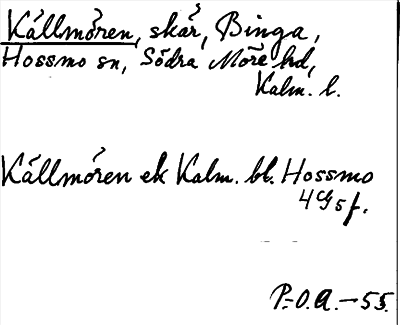 Källmören, skär, Binga,
Hossmo sn, Södra Möre hd,
Kalm. l.
Källmören ek Kalm. bl. Hossmo
4G5f.
P.-O.A.-55.